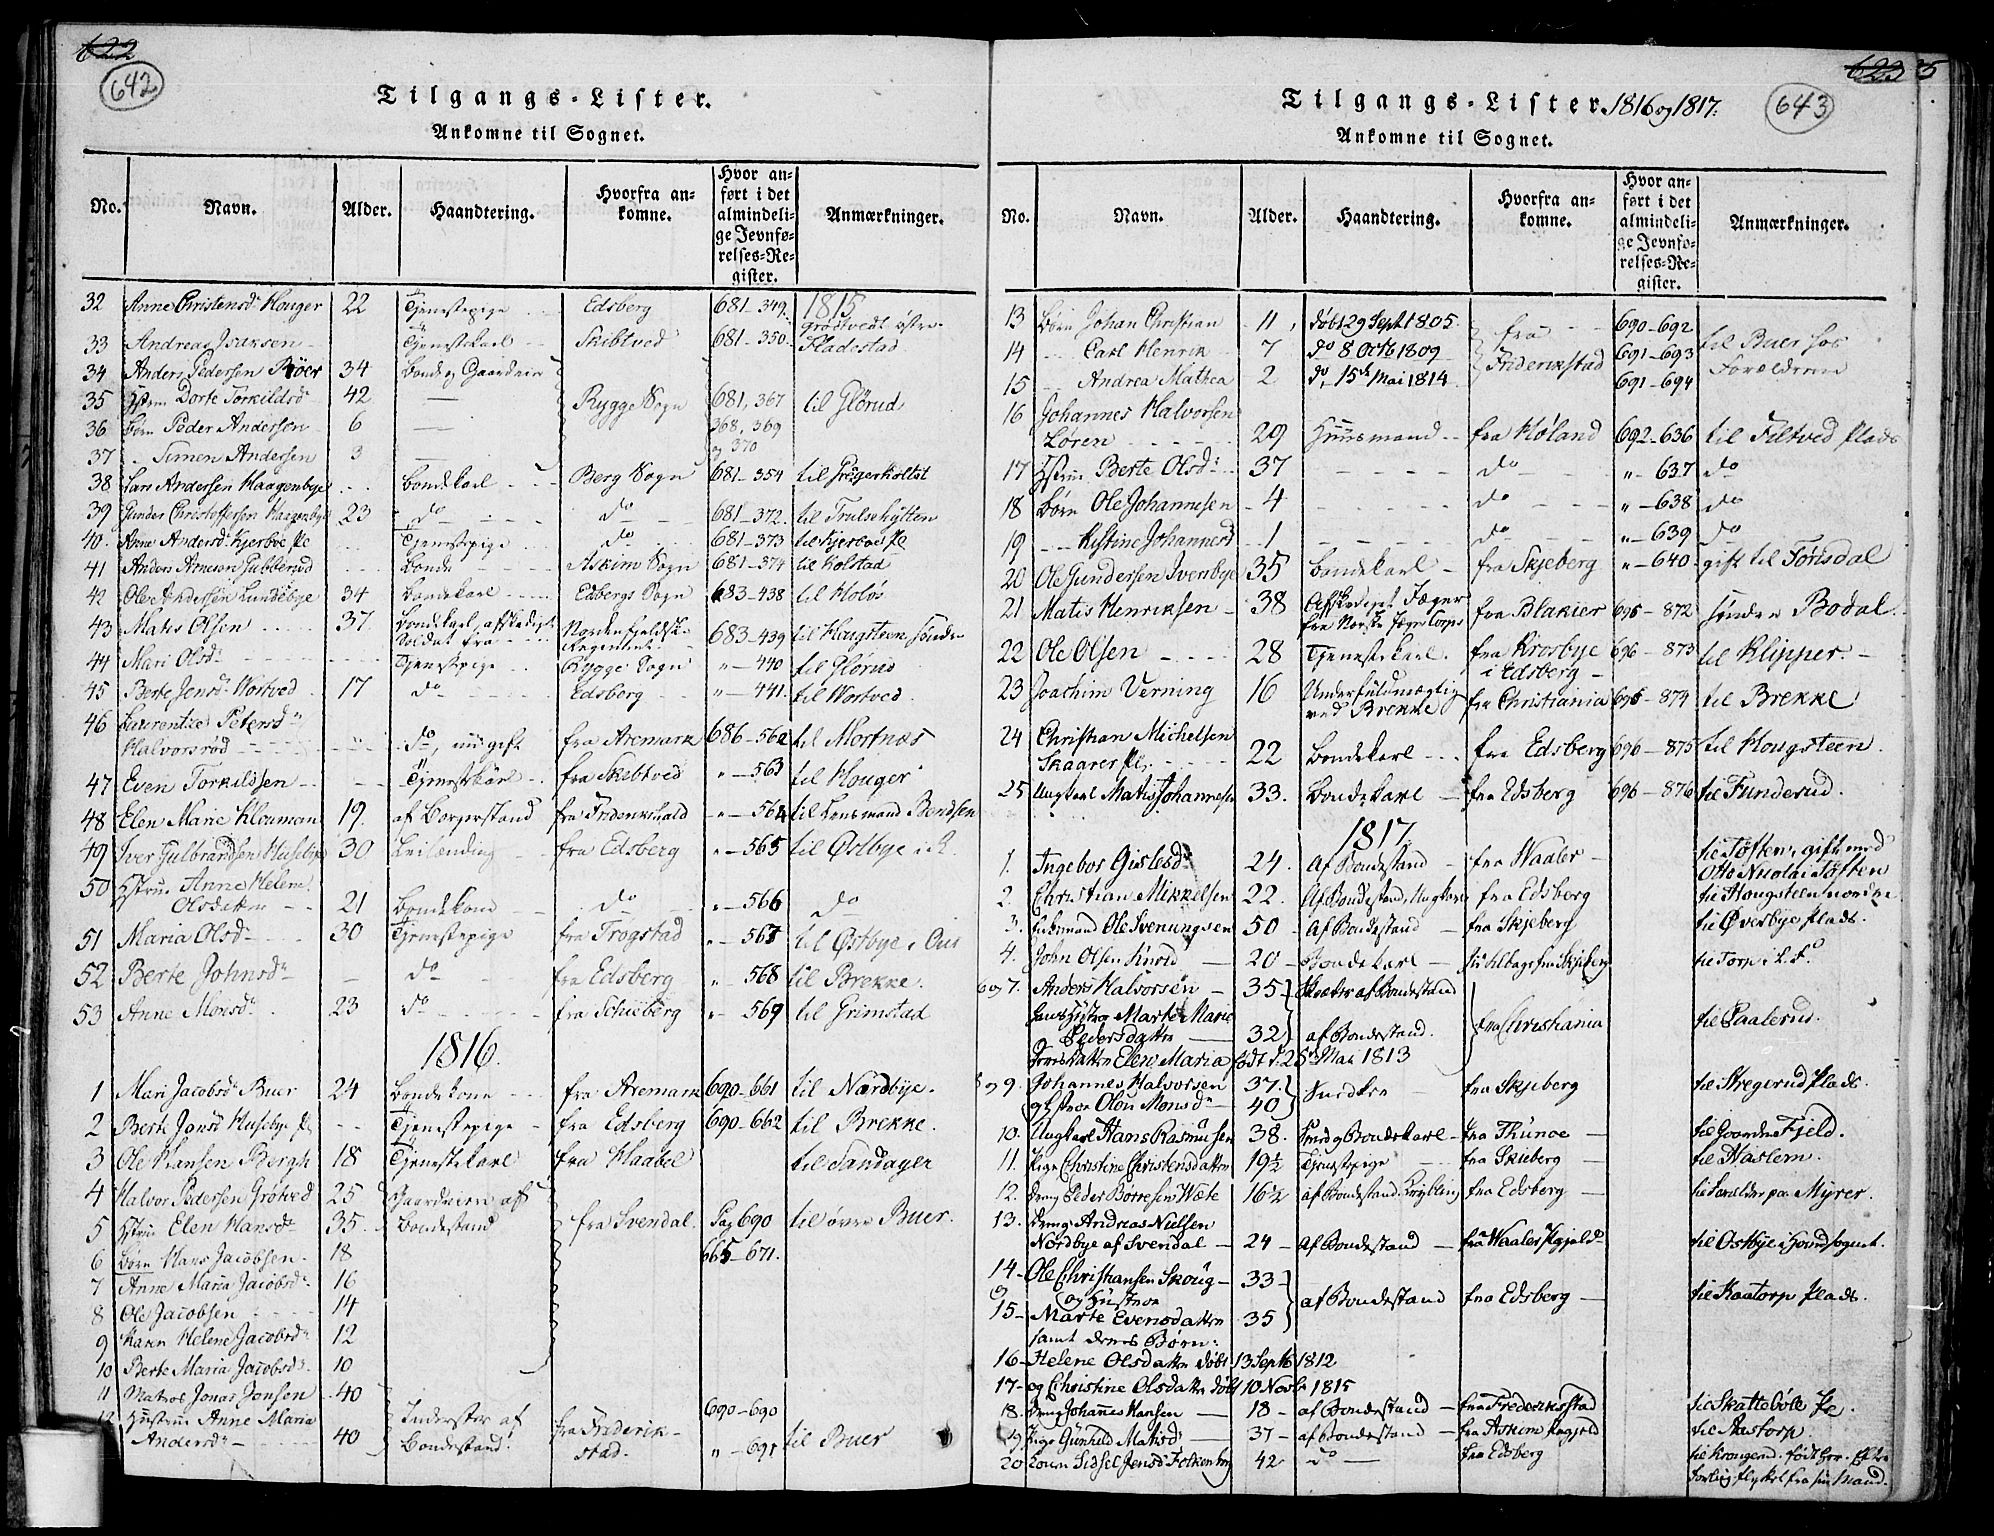 622
642
Tilgangs-Lister.
Ankomne til Sognet.
No. Navn. Alder. Haandtering. Hvorfra ankomne. Hvor anført i det almindelige Jevnførelses-Register. Anmærkninger.
32 Anne Christensd. Houger 22 Tjenestepige Edsberg 681-349 1815
33 Andreas Isaksen Tjenestekarl Skibtved 681-350 Grødtvedt østre Fladestad
34 Anders Pedersen Röer 34 Bonde og Gaardeier
35 Hstru Dorte Torkildsd 42 Rygge Sogn 681, 367 til Glörud
36 Børn Peder Andersen 6 368, 369
37 Simen Andersen 3 og 370
38 Lars Andersen Haagenbye Bondekarl Berg Sogn 681-354
39 Gunder Christoffersen Haagenbye 23 do do 681-372 til Trulsehytten
40 Anne Andersd. Kjerboe Pl Tjenestepige do 681-373 til Kjerboe Pl
41 Anders Arnesen Gubberud Bonde Askim Sogn 681-374 til Kolstad
42 Ole Andersen Lundebye 34 Bondekarl Edbergs Sogn 683-438 til Holøs
43 Mats Olsen 37 Bondekarl, afskediget Soldat fra Nordenfjeldske Regiment 683-439 til Hougsteen søndre
44 Mari Olsd. Tjenestepige Rygge Sogn " - 440 til Glörud
45 Berte Jensd. Wortved 17 do Edsberg " - 441 til Wortved
46 Laurentze Petersd.
Halvorsrød do, nu gift fra Aremark 686-562 til Mortnæs
47 Even Torkildsen Tjenestekar fra Skibtved " - 563 til Houger
48 Elen Marie Klouman 19. af Borgerstand fra Fridenkhald " - 564 til Lensmand Bendsen
49 Iver Gulbrandsen Husebye 30 Leilænding fra Edsberg " - 565 til Østbye i R.
50 Hstru Anne Helene
Olsdatter 21 Bondekone do " - 566 do
51 Maria Olsd 30 Tjenestepige fra Trogstad " - 567 til Østbye i Ous
52 Berte Johnsd. do fra Edsberg " - 568 til Brekke.
53 Anne Monsd. 23 do fra Schieberg " - 569 til Grimstad
1816.
1 Mari Jacobsd. Buer 24 Bondekone fra Aremark 690-661 til Nordbye.
2 Berte Jansd Husebye Pl Tjenestepige fra Edsberg 690-662 til Brekke.
3 Ole Hansen Bergh 18 Tjenestekarl fra Haabel til Sandager
4 Halvor Pedersen Grøtved 25 Gaardeiere af
5 Hstru Elen Hansd. 35. Bondestand fra Svendal. Pag 690 til øvre Buer.
6 Børn Hans Jacobsen 18 665-671.
7 Anne Maria Jacobsd. 16
8 Ole Jacobsen 14
9 Karen Helene Jacobsd. 12
10 Berte Maria Jacobsd. 10
11 Matros Jonas Jonsen 40 690-690
12 Hustru Anne Maria Inderster af fra Frederik-
Andersd. 40 Bondestand. stad. " - 691 til Buer
623
643
Tilgangs-Lister 1816 og 1817.
Ankomne til Sognet.
No. Navn. Alder. Haandtering. Hvorfra ankomne. Hvor anført i det almindelige Jevnførelses-Register. Anmærkninger.
13 Børn Johan Christian 11, døbt 29 Sept. 1805. fra 690-692 til Buer hos
14 Carl Henrik 7 do 8 Octb 1809 Friderikstad 691-693 Forældrene
15 Andrea Mathea 2 do, 15de Mai 1814 691-694
16 Johannes Halvorsen
Løren 29 Huusmand fra Høland 692-636 til Feltved Plads
17 Hstru Berte Olsd. 37 do " - 637 do
18 Børn Ole Johannesen 4 do " - 638 do
19 Kistine Johannesd 1 do " - 639 do
20 Ole Gundersen Ivenbye 35 Bondekarl fra Skjeberg " - 640 gift til Tørisdal
21 Matis Henriksen 38 Afskediget Jæger fra Norske Jæger Corps fra Blakier 696-872 søndre Bodal
22 Ole Olsen 28 Tjenestekarl. fra Krosbye i Edsberg 696-873 til Klipper.
23 Joachim Verning 16 Underfuldmægtig ved Brekke fra Christiania 696-874 til Brekke
24 Christian Michelsen
Skaarer Pl. 22 Bondekarl fra Edsberg 696-875 til Hougsteen.
25 Ungkarl Matis Johannesen 33. Bondekarl fra Edsberg 696-876 til Funderud.
1817.
1. Ingebor Gislesd. 24. Af Bondestand fra Waaler til Toften, gift med Otto Nicolai Toften
2. Christian Mikkelsen 22. Af Bondestand, Ungkarl fra Edsberg til Hougsteen nordre
3. Enkemand Ole Svenungsen 50 Af Bondestand fra Skjeberg til Øverbye Plads.
4. John Olsen 20 Bondekarl tilbage fra Skjeberg til Torp
6 og 7. Anders Halvorsen 35 af Bondestand
hans Hstro Marte Marie
Pedersdatter 32 af Bondestand. fra Christiania til Paalerud.
deres datter Elen Maria født d. 25 Mai 1813
8 og 9. Johannes Halvorsen 37. Snedker fra Skjeberg til Stregerud Plads.
og Hstroe Olou Monsd. 40
10. Ungkarl Hans Rasmusen 38. Smed og Bondekarl fra Thunoe til Gaarden Fjeld.
11. Pige Christine Christensdatter 19½ Tjenestepige fra Skjeberg til Haslem.
12. Dreng Peder Børresen Wæte 16½ af Bondestand fra Edsberg til Forælder paa Myrer.
13. Dreng Andreas Nielsen
Nordbye af Svendal 24 Af Bondestand fra Waaler Pgjeld til Ostbye i Hovedsognet.
14 Ole Christiansen Skoug 33
og og Hustroe af Bondestand fra Edsberg til Kaatorp Plads.
15 Marte Evensdatter 35
samt deres Børn:
16 Helene Olsdatter døbt 13 Septb 1812
17 og Christine Olsdatter døbt 10 Novb. 1815
18. Dreng Johannes Hansen 18 af Bondestand fra Frederiksstad til Skattebøle Pl.
19 Pige Gunhild Matisd. 37 af Bondestand fra Askim Pgjeld til Aastorp.
20 Konen Sidsel Jensd. 42 do fra Edsberg til Krogerud. født her.
flyttet fra sin Mand.